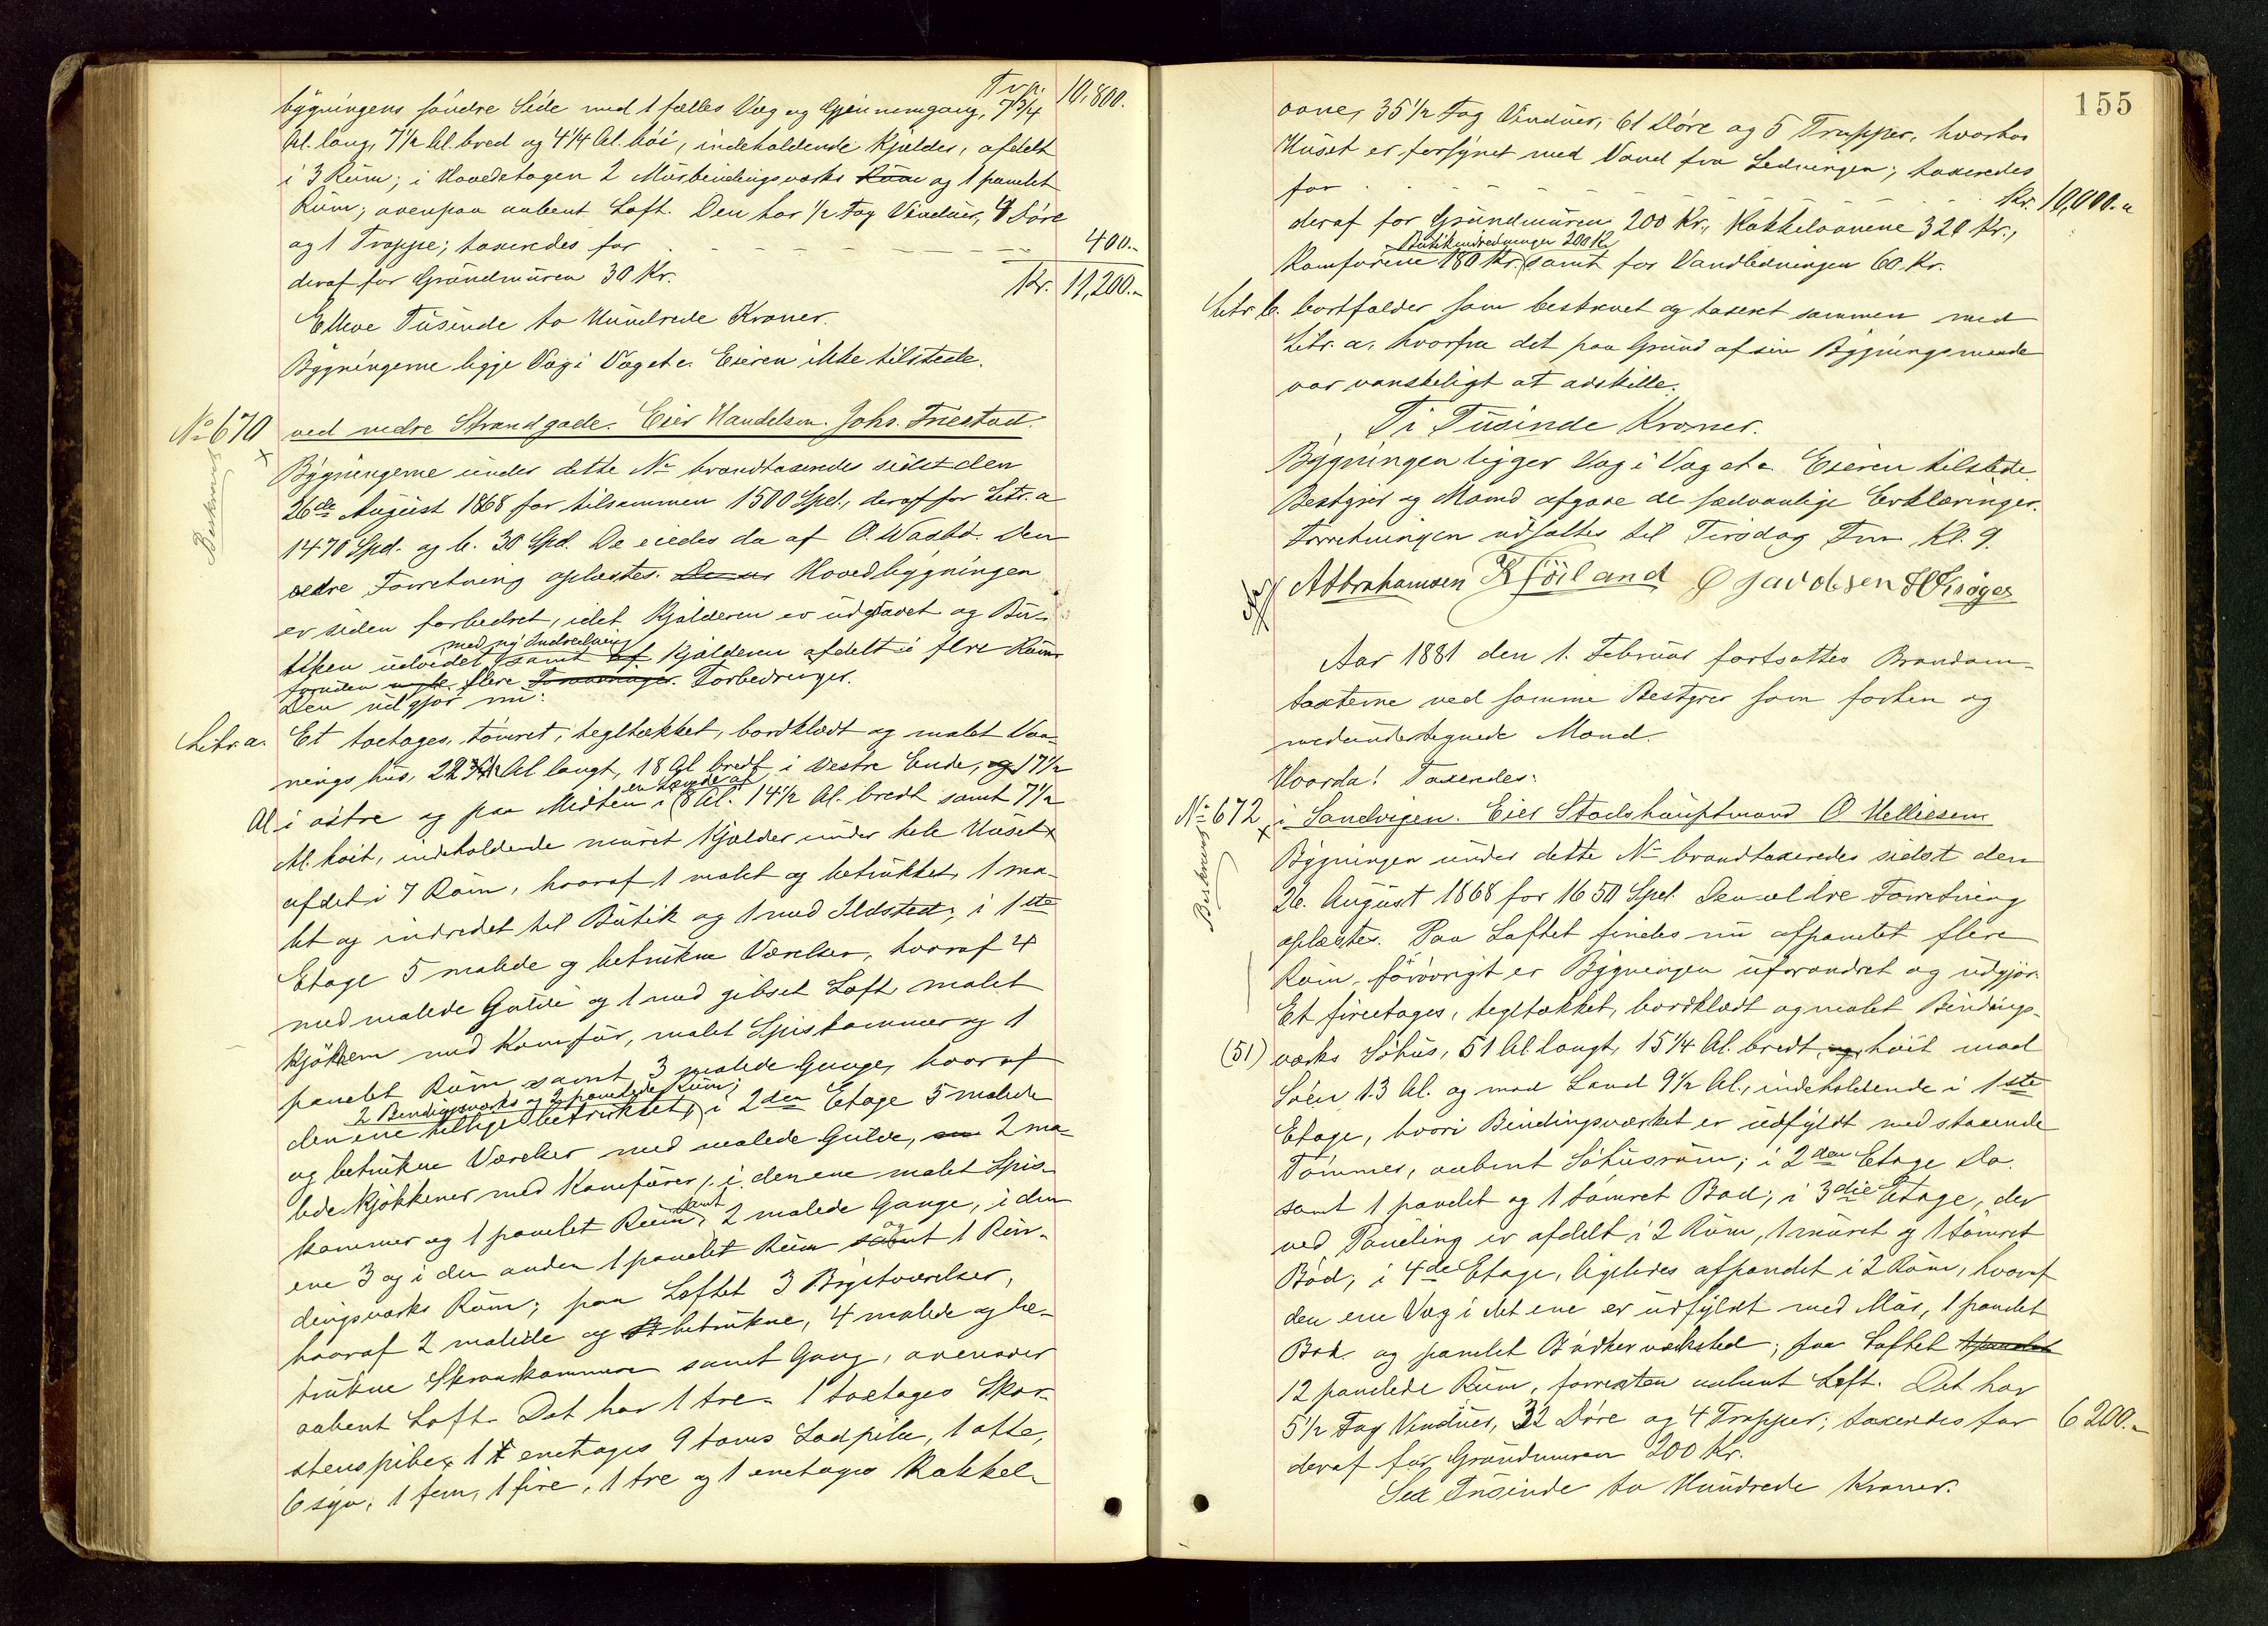 Trp. 10,800.
bygningens söndre Side med 1 fælles Væg og Gjennemgang, 7 3/4
Al. lang, 7 1/2 Al. bred og 4 1/4 Al. höi, indeholdende Kjelder, afdelt
i 3 Rum; i Hovedetagen 2 Murbindingsværks Rum og 1 panelet
Rum; ovenpaa aabent Loft. Den har 1/2 Fag Vinduer, 4 Döre
og 1 Trappe; taxeredes for 400.-
deraf for Grundmuren 30 Kr. Kr. 11,200.-
Elleve Tusinde to Hundrede Kroner.
Bygningerne ligge Væg i Væg etc. Eieren ikke tilstede.
No 670 ved nedre Strandgade. Eier Handelsm. Johs. Friestad.
Beskrevet
Bygningerne under dette No brandtaxeredes sidst den
26de August 1868 for tilsammen 1500 Spd., deraf for Litr. a
1470 Spd. og b. 30 Spd. De eiedes da af O. Wasbø. Den
ældre Forretning oplæstes. Hovedbygningen
er siden forbedret, idet Kjælderen er udgravet og Bu-
med ny Indredning
tiken udvidet samt af Kjælderen afdelt i flere Rum
foruden nogle flere Forbedringer.
Den udgjør nu:
Litr. a. Et toetages, tömret, tegltækket, bordklædt og malet Vaa-
ningshus, 22 3/4 Al langt, 18 Al bredt i vestre Ende, og 17 1/2
en Længde af
Al. i östre og paa Midten i 8 Al. 14 1/2 Al. bredt samt 7 1/2
Al. höit, indeholdende muret Kjelder under hele Huset
afdelt i 7 Rum, hvoraf 1 malet og betrukket, 1 ma-
let og indredet til Butik og 1 med Ildsted; i 1ste
Etage 5 malede og betrukne Værelser, hvoraf 4
med malede Gulve og 1 med gibset Loft, malet
Kjökken med Komfur, malet Spiskammer og 1
panelet Rum samt 3 malede Gange, hvoraf
2 Bindingsværks og 2 panelede Rum;
den ene tillige betrukket, i 2den Etage 5 malede
og betrukne Værelser med malede Gulve, 2 ma-
lede Kjökkener med Komfurer, i den ene malet Spis-
kammer og 1 panelet Rum, samt 2 malede Gange, i den
ene 3 og i den anden 1 panelet Rum samt og 1 Bin-
dingsværks Rum; paa Loftet 3 Bygstværelser,
hvoraf 2 malede og betrukne, 4 malede og be-
trukne Skraakammere samt Gang, ovenover
aabent Loft. Det har 1 tre- 1 toetages Skor-
stenspibe, 1 enetages 9 toms Lodpibe, 1 otte,
6 syv, 1 fem, 1 fire, 1 tre og 1 enetages Kakkel-
155
ovne, 35 1/2 Fag Vinduer, 61 Döre og 5 Trapper, hvorhos
Huset er forsynet med Vand fra Ledningen; taxeredes
for Kr. 10,000.-
deraf for Grundmuren 200 Kr., Kakkelovnene 320 Kr.,
Butikindredninger 200 Kr
Komfurene 180 Kr. samt for Vandledningen 60 Kr.
Litr. b. bortfalder som beskrevet og taxeret sammen med
Litr. a. hvorfra det paa Grund af sin Bygningsmaade
var vanskeligt at adskille.
Ti Tusinde Kroner.
Bygningen ligger Væg i Væg etc. Eieren tilstede.
Bestyrer og Mænd afgave de sædvanlige Erklæringer.
Forretningen udsattes til Tirsdag Fm Kl. 9.
A Abrahamsen K Höiland O Jacobsen H Kröger
Aar 1881 den 1. Februar fortsattes Brandom-
taxterne ved samme Bestyrer som forhen og
medundertegnede Mænd.
Hvorda! Taxeredes:
No 672 i Sandvigen. Eier Stadshauptmand O Helliesen
Beskrevet
Bygningen under dette No brandtaxeredes sidst den
26. August 1868 for 1650 Spd. Den ældre Forretning
oplæstes. Paa Loftet findes nu afpanelet flere
Rum, forövrigt er Bygningen uforandret og udgjör:
Et fireetages, tegltækket, bordklædt og malet Bindings-
(51) værks Söhus, 51 Al. langt, 15 1/4 Al. bredt, og höit mod
Söen 13 Al. og mod Land 9 1/2 Al., indeholdende i 1ste
Etage, hvori Bindingsværket er udfyldt med staaende
Tömmer, aabent Söhusrum; i 2den Etage Do.
samt 1 panelet og 1 tömret Bod; i 3die Etage, der
ved Paneling er afdelt i 2 Rum, 1 muret og 1 tömret
Bod; i 4de Etage, ligeledes afpanelet i 2 Rum, hvoraf
den ene Væg i det ene er udfyldt med Mur, 1 panelet
Bod og panelet Bödkerværksted; paa Loftet 1 panelet
12 panelede Rum, forresten aabent Loft. Det har
5 1/2 Fag Vinduer, 32 Döre og 4 Trapper; taxeredes for 6200.-
deraf for Grundmuren 200 Kr.
Sex Tusinde to Hundrede Kroner.